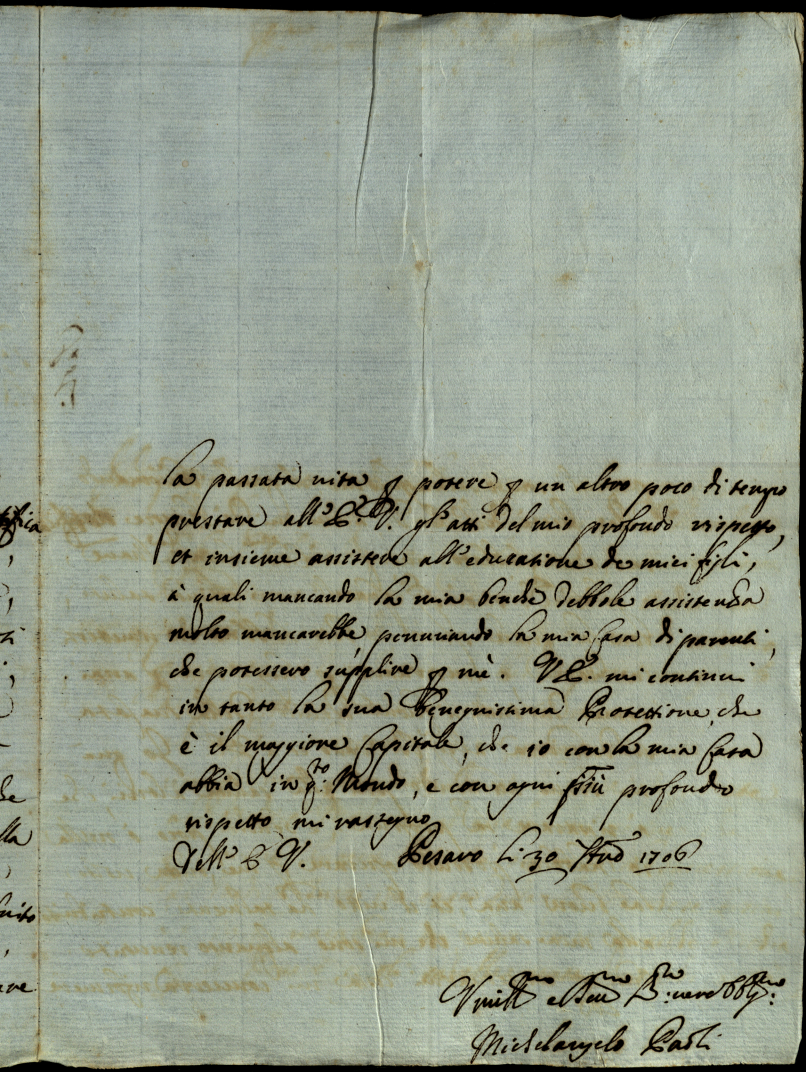 la passata vita p potere p un altro poco di tempo
prestare all'E. V. gl'atti del mio profondo rispetto,
et insieme assistere all'educatione de miei figli,
à quali mancando la mia benche debbole assistenza
molto mancarebbe, penuriando la mia Casa di parenti,
che potessero supplire p mè. V. E. mi continui
in tanto la sua benegnissima Protettione, che
è il maggiore Capitale, che io con la mia Casa
abbia in q.to Mondo, e con ogni più profondo
rispetto mi rassegno
Dell'E. V. Pesaro li 30 1706
Umill.mo e Dev.mo S.re vero obblig.mo
Michelangelo Paoli
che
lla